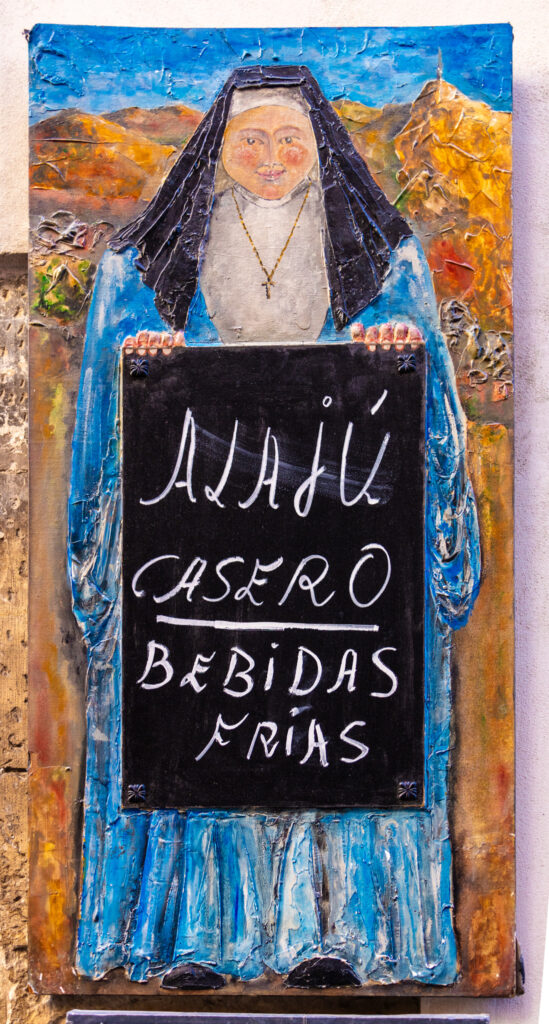 ALAJÚ
CASERO
BEBIDAS
FRÍAS